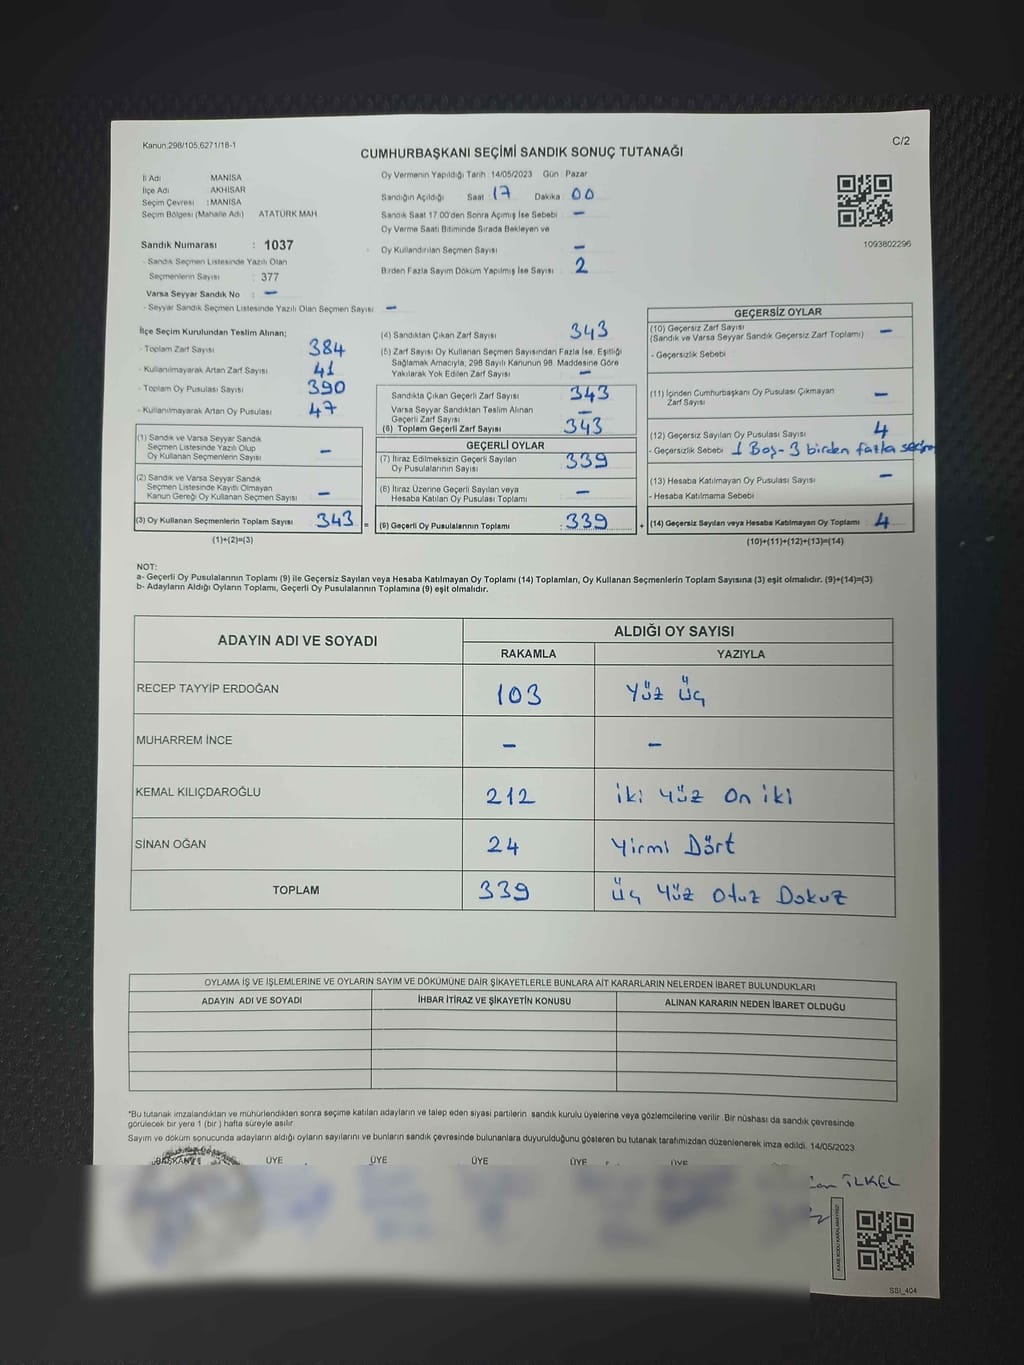 Kanun:298/105,6271/18-1
C/2
CUMHURBAŞKANI SEÇİMİ SANDIK SONUÇ TUTANAĞI
İl Adı MANİSA
İlçe Adı AKHİSAR
Seçim Çevresi : MANİSA
Seçim Bölgesi (Mahalle Adı) ATATÜRK MAH.
Sandık Numarası : 1037
- Sandık Seçmen Listesinde Yazılı Olan
Seçmenlerin Sayısı : 377
Varsa Seyyar Sandık No : -
- Seyyar Sandık Seçmen Listesinde Yazılı Olan Seçmen Sayısı -
Oy Vermenin Yapıldığı Tarih : 14/05/2023 Gün : Pazar
Sandığın Açıldığı Saat : 17 Dakika 00
Sandık Saat 17.00'den Sonra Açımış İse Sebebi -
Oy Verme Saati Bitiminde Sırada Bekleyen ve
Oy Kullandırılan Seçmen Sayısı -
Birden Fazla Sayım Döküm Yapılmış İse Sayısı 2
1093802296
İlçe Seçim Kurulundan Teslim Alınan;
- Toplam Zarf Sayısı 384
- Kullanılmayarak Artan Zarf Sayısı 41
- Toplam Oy Pusulası Sayısı 390
- Kullanılmayarak Artan Oy Pusulası 47
(1) Sandık ve Varsa Seyyar Sandık
Seçmen Listesinde Yazılı Olup
Oy Kullanan Seçmenlerin Sayısı -
(2) Sandık ve Varsa Seyyar Sandık
Seçmen Listesinde Kayıtlı Olmayan
Kanun Gereği Oy Kullanan Seçmen Sayısı -
(3) Oy Kullanan Seçmenlerin Toplam Sayısı 343 =
(1)+(2)=(3)
(4) Sandıktan Çıkan Zarf Sayısı 343
(5) Zarf Sayısı Oy Kullanan Seçmen Sayısından Fazla İse, Eşitliği
Sağlamak Amacıyla, 298 Sayılı Kanunun 98. Maddesine Göre
Yakılarak Yok Edilen Zarf Sayısı -
Sandıkta Çıkan Geçerli Zarf Sayısı 343
Varsa Seyyar Sandıktan Teslim Alınan
Geçerli Zarf Sayısı -
(6) Toplam Geçerli Zarf Sayısı 343
GEÇERLİ OYLAR
(7) İtiraz Edilmeksizin Geçerli Sayılan
Oy Pusulalarının Sayısı 339
(8) İtiraz Üzerine Geçerli Sayılan veya
Hesaba Katılan Oy Pusulası Toplamı -
(9) Geçerli Oy Pusulalarının Toplamı : 339 +
GEÇERSİZ OYLAR
(10) Geçersiz Zarf Sayısı
(Sandık ve Varsa Seyyar Sandık Geçersiz Zarf Toplamı) -
- Geçersizlik Sebebi
(11) İçinden Cumhurbaşkanı Oy Pusulası Çıkmayan
Zarf Sayısı -
(12) Geçersiz Sayılan Oy Pusulası Sayısı 4
- Geçersizlik Sebebi 1 Boş - 3 birden fazla seçim
(13) Hesaba Katılmayan Oy Pusulası Sayısı -
- Hesaba Katılmama Sebebi
(14) Geçersiz Sayılan veya Hesaba Katılmayan Oy Toplamı 4
(10)+(11)+(12)+(13)=(14)
NOT:
a- Geçerli Oy Pusulalarının Toplamı (9) ile Geçersiz Sayılan veya Hesaba Katılmayan Oy Toplamı (14) Toplamları, Oy Kullanan Seçmenlerin Toplam Sayısına (3) eşit olmalıdır. (9)+(14)=(3)
b- Adayların Aldığı Oyların Toplamı, Geçerli Oy Pusulalarının Toplamına (9) eşit olmalıdır.
ADAYIN ADI VE SOYADI ALDIĞI OY SAYISI
RAKAMLA YAZIYLA
RECEP TAYYİP ERDOĞAN 103 Yüz üç
MUHARREM İNCE - -
KEMAL KILIÇDAROĞLU 212 iki yüz on iki
SİNAN OĞAN 24 Yirmi Dört
TOPLAM 339 üç yüz otuz Dokuz
OYLAMA İŞ VE İŞLEMLERİNE VE OYLARIN SAYIM VE DÖKÜMÜNE DAİR ŞİKAYETLERLE BUNLARA AİT KARARLARIN NELERDEN İBARET BULUNDUKLARI
ADAYIN ADI VE SOYADI İHBAR İTİRAZ VE ŞİKAYETİN KONUSU ALINAN KARARIN NEDEN İBARET OLDUĞU
*Bu tutanak imzalandıktan ve mühürlendikten sonra seçime katılan adayların ve talep eden siyasi partilerin sandık kurulu üyelerine veya gözlemcilerine verilir. Bir nüshası da sandık çevresinde
görülecek bir yere 1 (bir ) hafta süreyle asılır
Sayım ve döküm sonucunda adayların aldığı oyların sayılarını ve bunların sandık çevresinde bulunanlara duyurulduğunu gösteren bu tutanak tarafımızdan düzenlenerek imza edildi. 14/05/2023
BAŞKAN ÜYE ÜYE ÜYE ÜYE ÜYE
İLKEL
KARE KODU KARALAMAYINIZ!
SSI_404